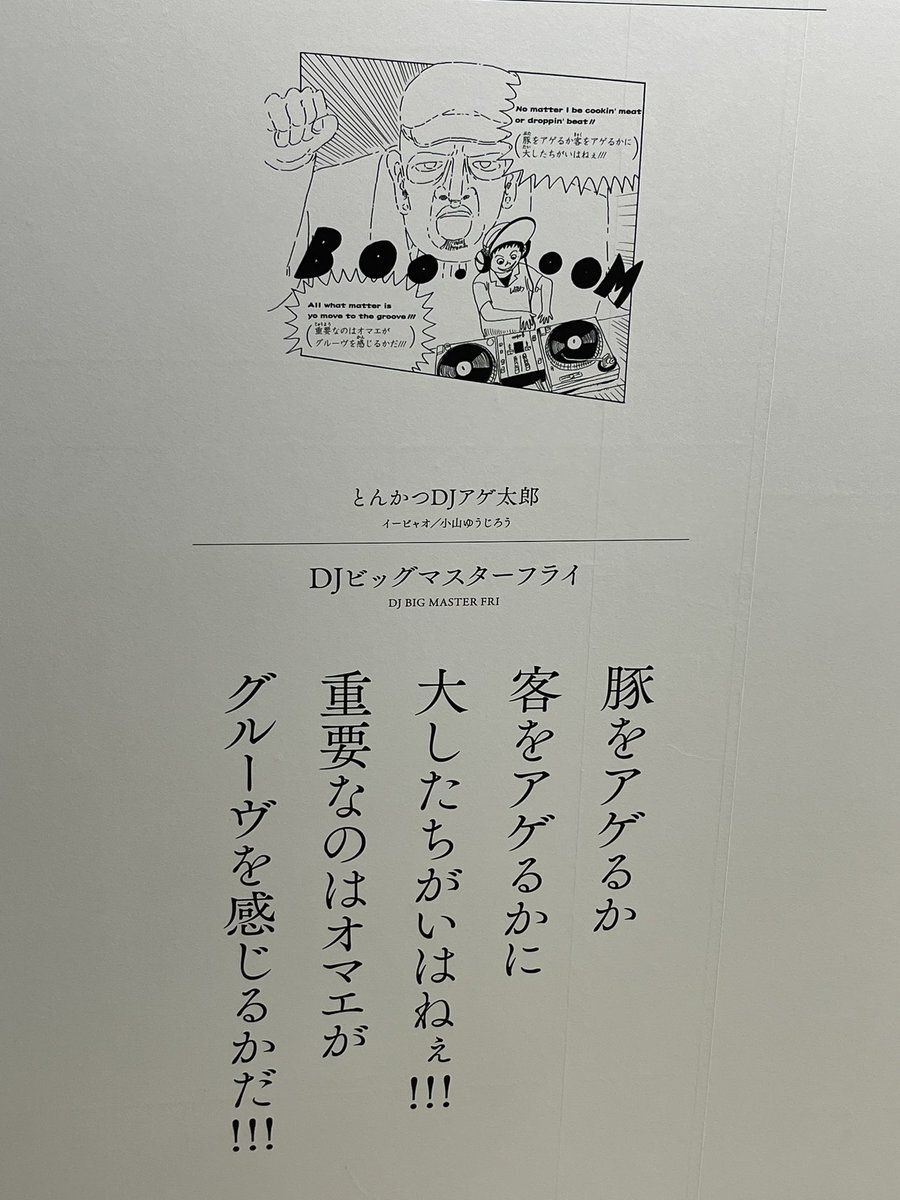 No matter I be cookin' meat
or droppin' beat!!
(豚をアゲるか客をアゲるかに
大したちがいはねぇ!!!)
BOO..OOM
All what matter is
yo move to the groove!!!
(重要なのはオマエが
グルーヴを感じるかだ!!!)
とんかつDJアゲ太郎
イーピャオ/小山ゆうじろう
DJビッグマスターフライ
DJ BIG MASTER FRI
豚をアゲるか
客をアゲるかに
大したちがいはねぇ!!!
重要なのはオマエが
グルーヴを感じるかだ!!!